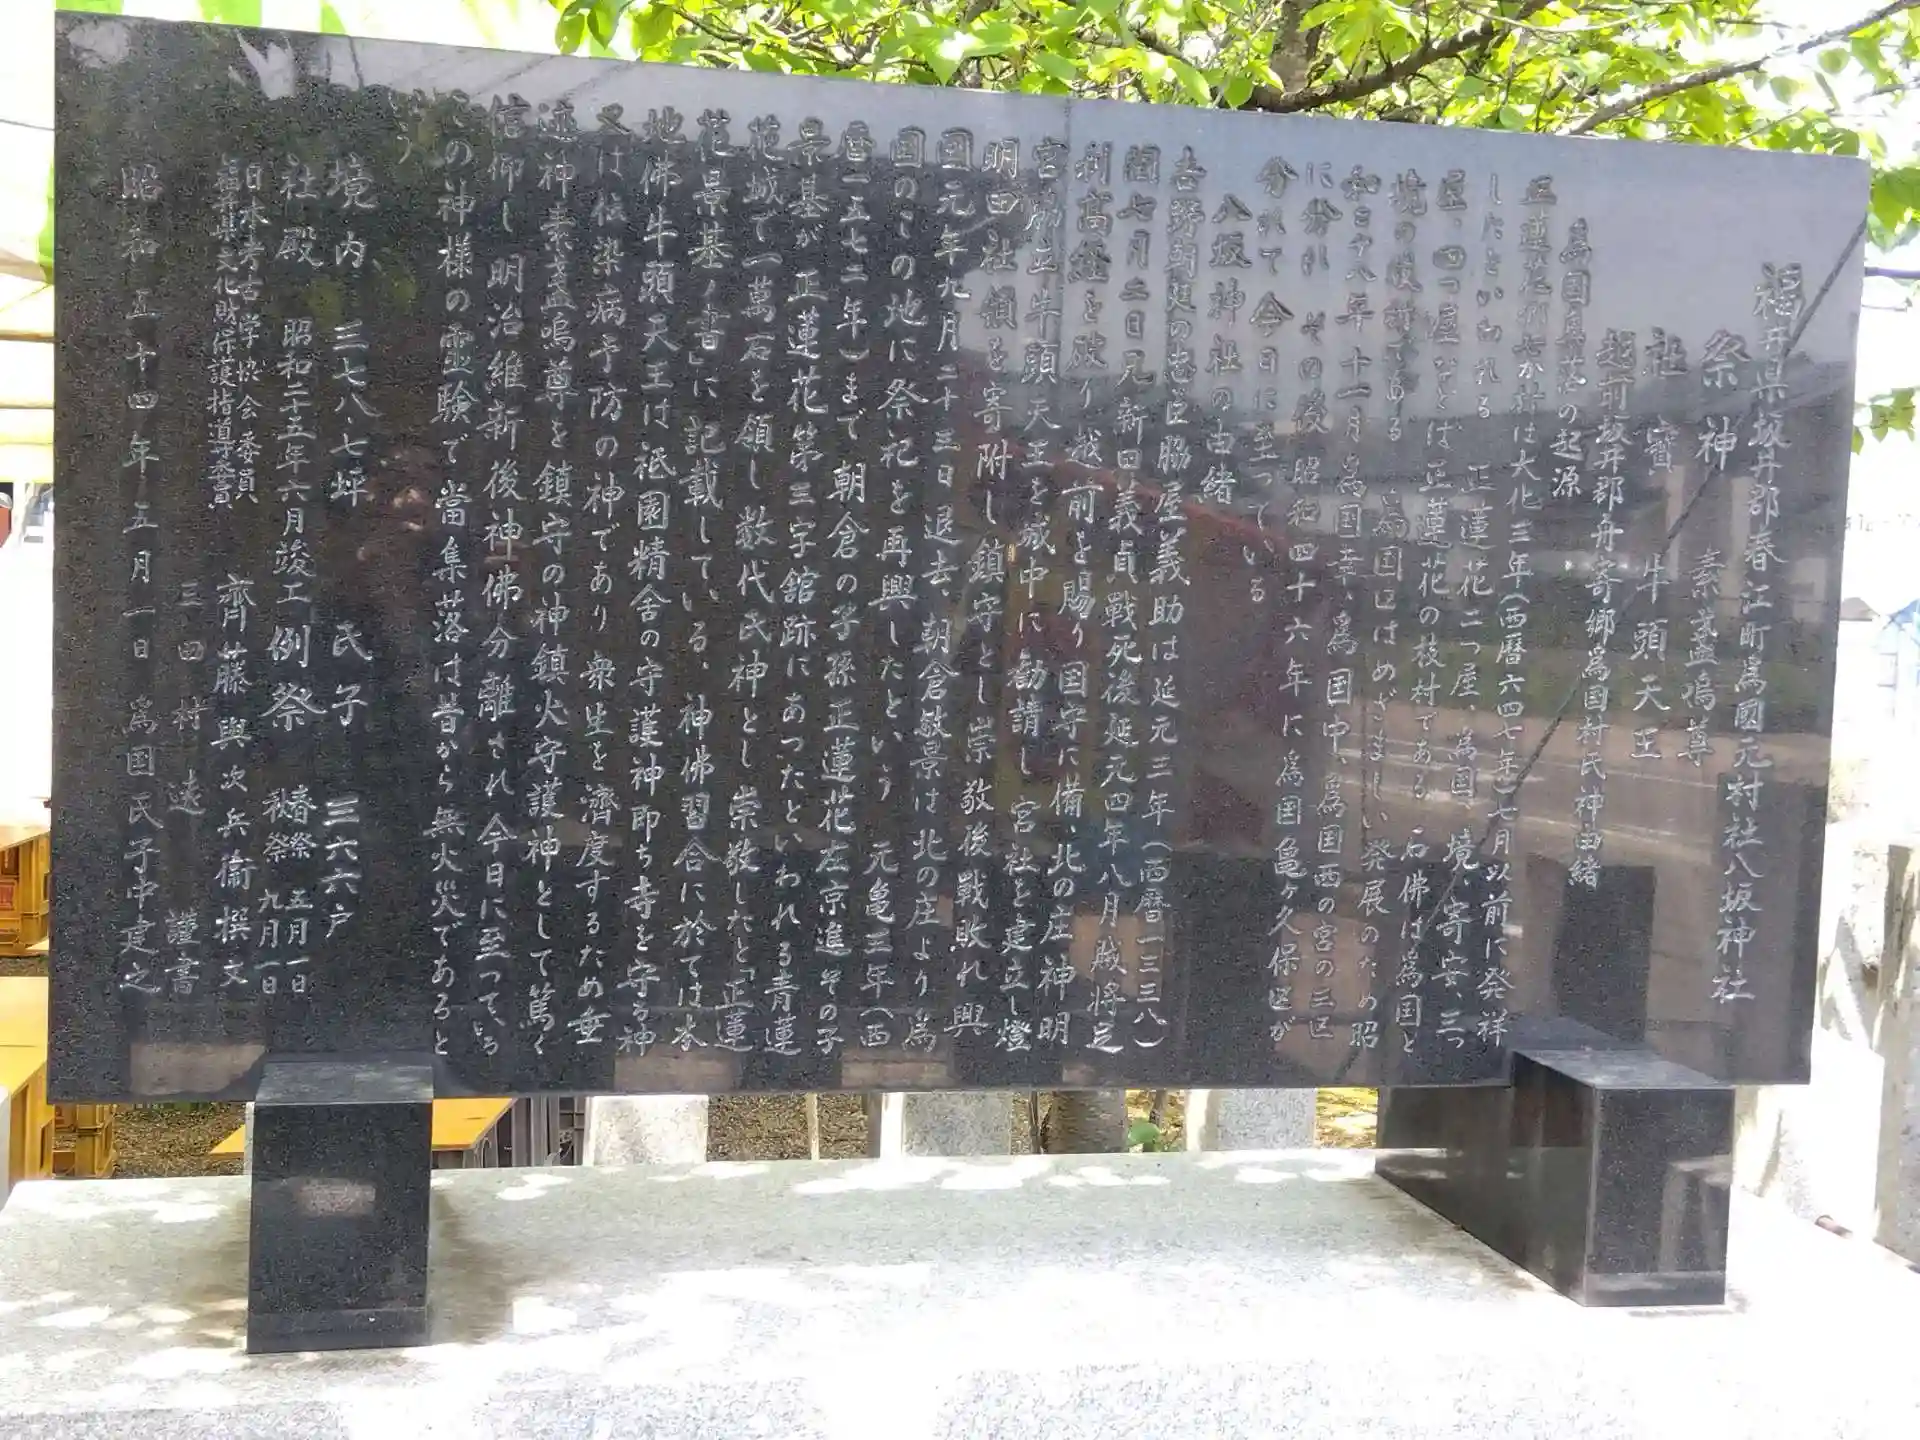 福井県坂井郡春江町為國元村社八坂神社
祭神 素盞嗚尊
社寳 牛頭天王
越前坂井郡舟寄郷為国村氏神由緒
為国集落の起源
正蓮花別七か村は大化三年(西暦六四七年)七月以前に発祥
したといわれる 正蓮花二つ屋、為国、境、寄安、三つ
屋、四つ屋などは正蓮花の枝村である 石佛は為国と
境の後村である 為国区はめざましい発展のため昭
和三十八年十一月為国幸、為国中、為国西の宮の三区
に分れ その後昭和四十六年に為国亀ヶ久保区が
分れて今日に至っている
八坂神社の由緒
吉野朝廷の忠臣脇屋義助は延元三年(西暦一三三八)
閏七月二日兄新田義貞戰死後延元四年八月賊将足
利高経を破り越前を賜り国守に備、北の庄神明
宮脇立牛頭天王を城中に勧請し宮社を建立し燈
明田社領を寄附し鎮守とし崇敬後戰敗れ興
国元年九月二十三日退去、朝倉敏景は北の庄より為
国のこの地に祭祀を再興したという 元亀三年(西
暦一五七二年)まで朝倉の子孫正蓮花左京進その子
景基が正蓮花第三字舘跡にあつたといわれる青蓮
花城で一萬石を領し数代氏神とし崇敬したと「正蓮
花景基ノ書」に記載している、神佛習合に於ては本
地佛牛頭天王は祇園精舎の守護神即ち寺を守る神
又は伝染病予防の神であり衆生を濟度するため垂
迹神素盞嗚尊を鎮守の神鎮火守護神として篤く
信仰し明治維新後神佛分離され今日に至つている
この神様の霊験で當集落は昔から無火災であると
いう
境内 三七八・七坪 氏子 三六六戸
社殿 昭和二十五年六月竣工 例祭 春祭 五月一日 秋祭 九月一日
日本考古学協会委員
福井県文化財保護指導委員 齊藤與次兵衞撰文
三田村 遠 謹書
昭和五十四年五月一日 為国氏子中建之